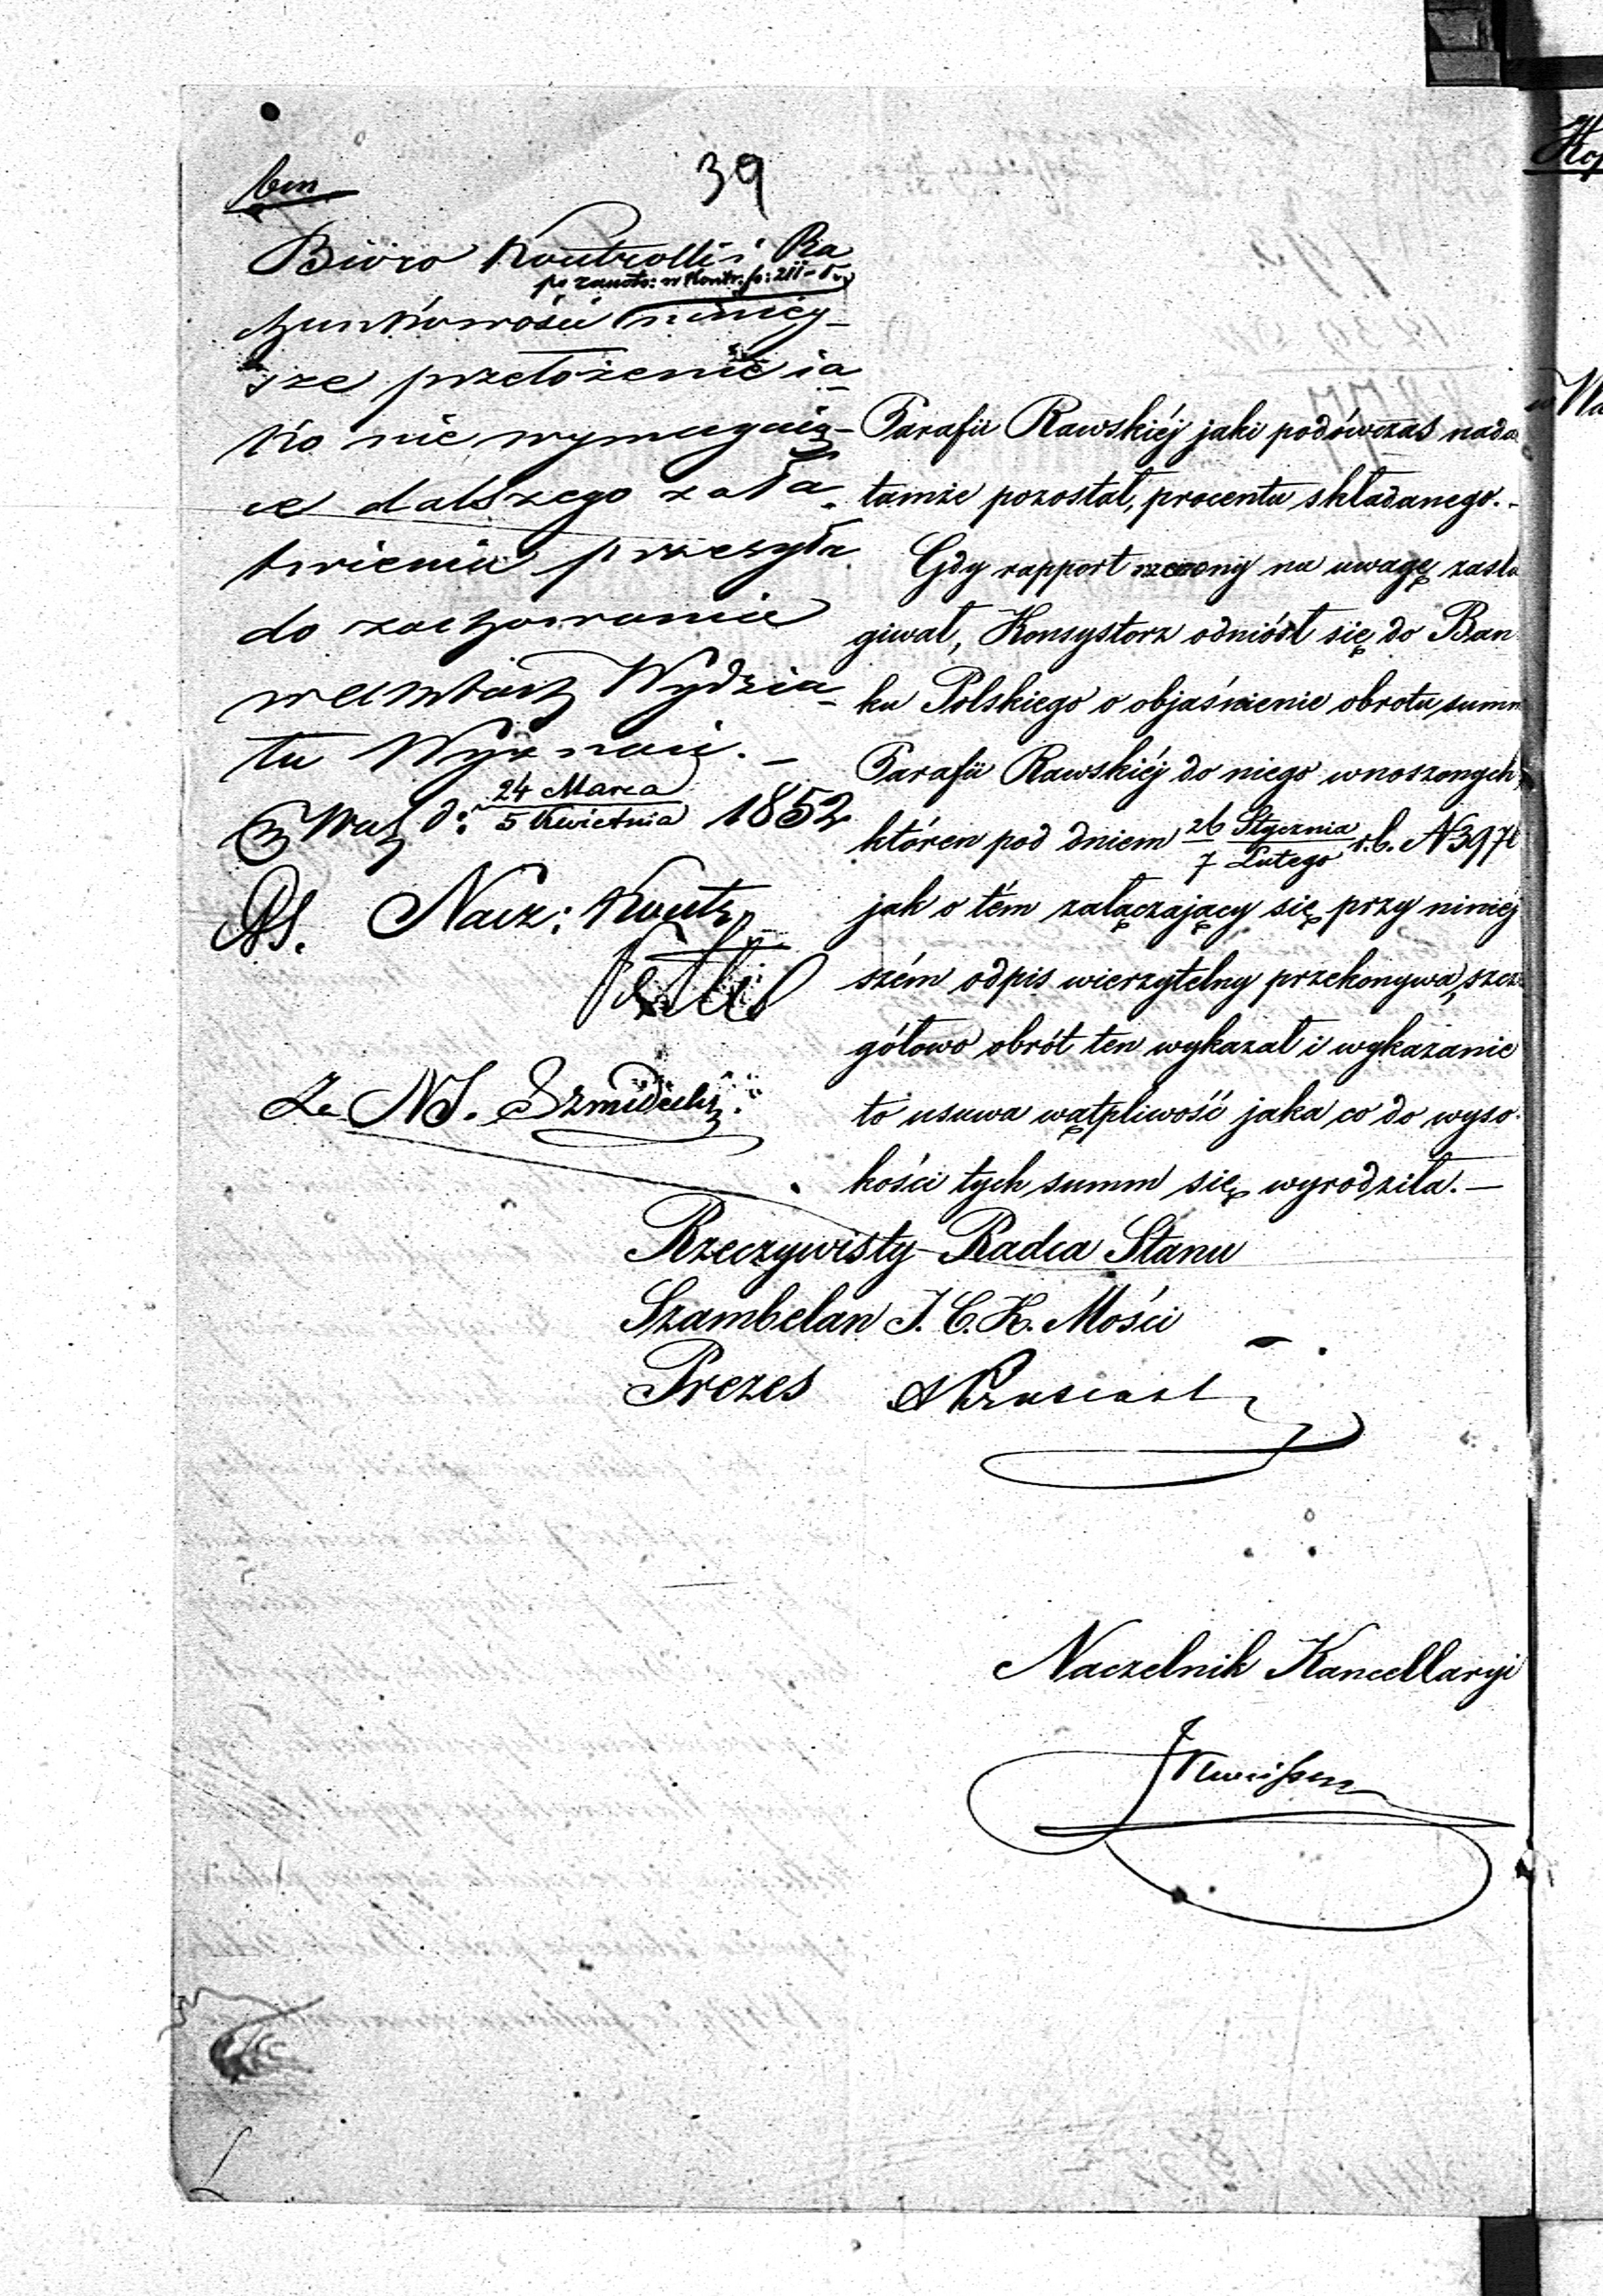 39
bm
Bióro Kontrolli i Ra
po zanot: w Kontr. fo: 211
chunkowości niniej-
sze przełożenie ja-
ko nie wymagają-
ce dalszego zała-
twienia przesyła
do zachowania
w aktach Wydzia-
łu Wyznań. -
W Wah d: 24 Marca / 5 Kwietnia 1852
Nacz: Kontr
Za NS.
Parafii Rawskiéj jaki podówczas nada
tamże pozostał, procentu składanego. -
Gdy rapport rzeczony na uwagę zasłu
giwał, Konsystorz odniósł się do Ban
ku Polskiego o objaśnienie obrotu summ
Parafii Rawskiéj do niego wnoszonych,
któren pod dniem 26 Stycznia / 7 Lutego r.b. N 397
jak o tém załączający się przy niniej
szém odpis wierzytelny przekonywa, szcze
gółowo obrót ten wykazał i wykazanie
to usuwa wątpliwość jaka co do wyso-
kości tych summ się wyrodziła. -
Rzeczywisty Radca Stanu
Szambelan J. C. K. Mości
Prezes
Naczelnik Kancellaryi